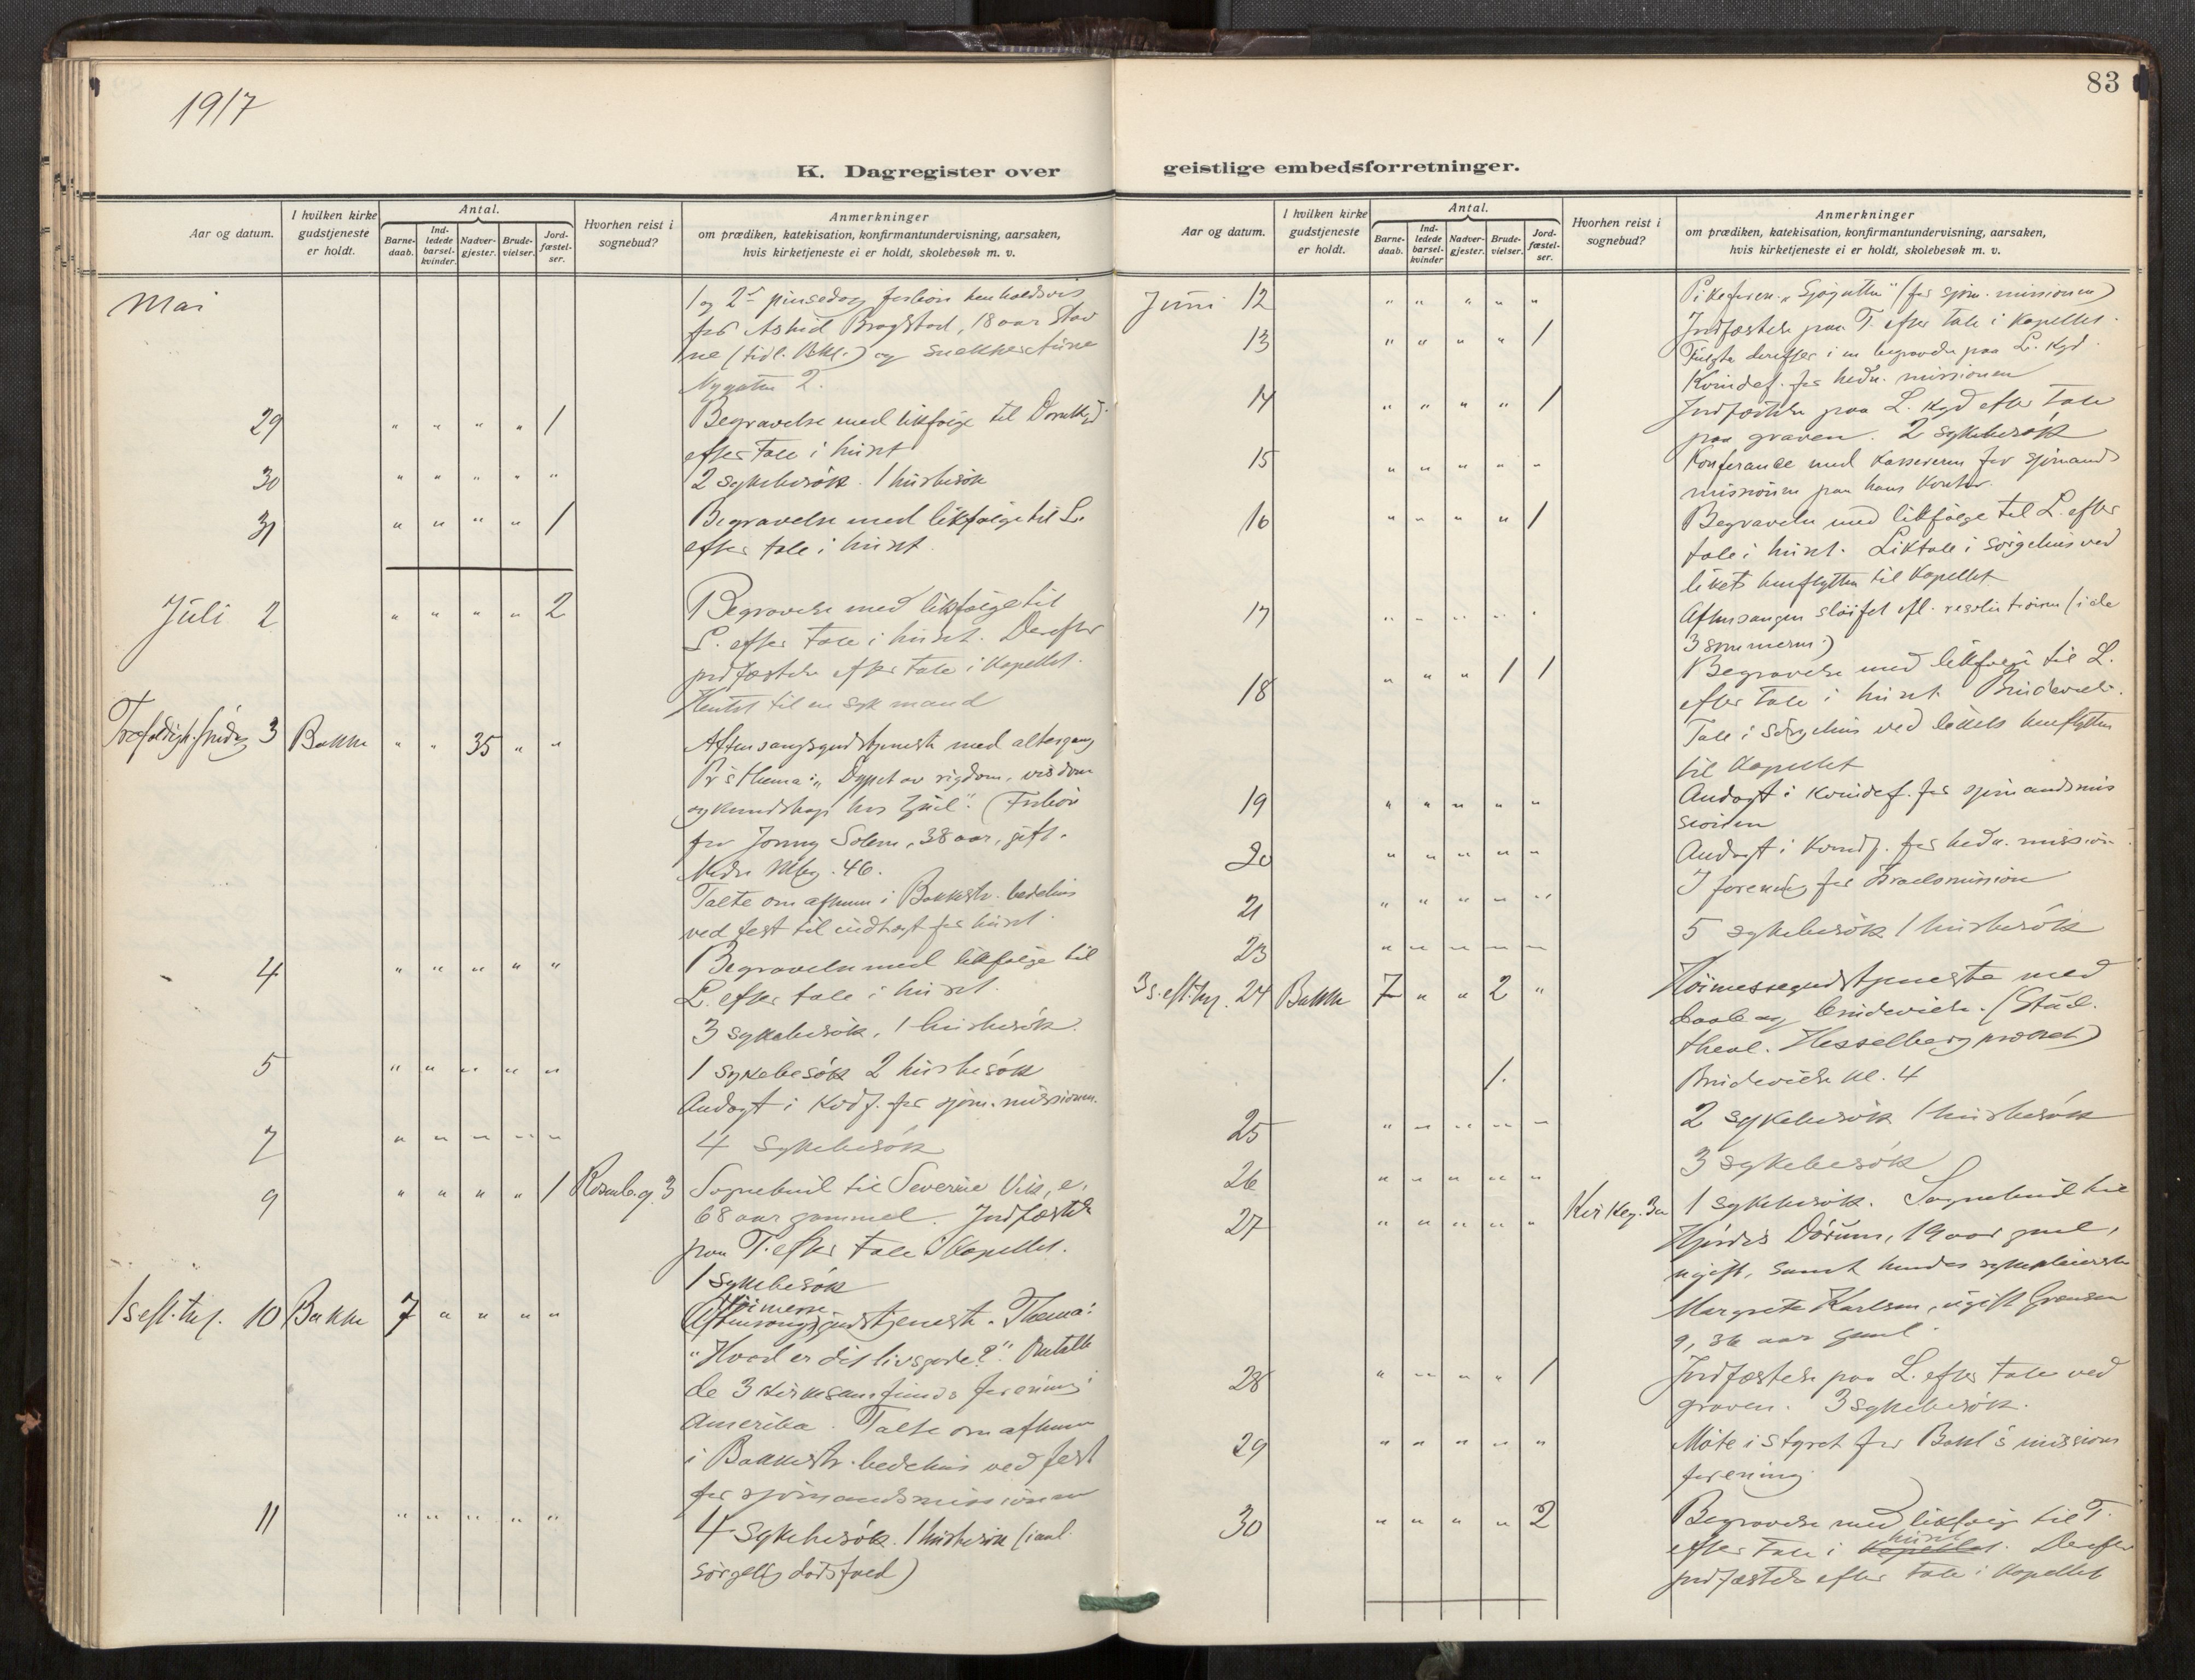 1917
K. Dagregister over
Aar og datum.
I hvilken kirke
gudstjeneste
er holdt.
Antal.
Barne-
daab.
Ind-
ledede
barsel-
kvinder.
Nadver-
gjester.
Brude-
vielser.
Jord-
fæstel-
ser.
Hvorhen reist i
sognebud?
Anmerkninger
om prædiken, katekisation, konfirmantundervisning, aarsaken,
hvis kirketjeneste ei er holdt, skolebesøk m. v.
Mai
1 og 2 pinsedag forbön henholdsvis
for Astrid Bragstad, 18 aar Stav
ne (tidl. Bkl.) og
Nygaten 2.
29 " " " " 1 Begravelse med likfölge til Domk
efter tale i huset
30 " " " " " 2 sykebesök. 1 husbesök
31 " " " " 1 Begravelse med likfölge til L.
efter tale i huset.
Juli 2 " " " " 2 Begravelse med likfölge til
L. efter tale i huset. Derefter
jordfæstelse efter tale i Kapellet.
Hentet til en syk mand
3 Bakke " " 35 " " Aftensangsgudstjeneste med altergang
Pr's thema: "Dypet av rigdom, visdom
og kundskap hos Gud". (Forbön
for Jonny Solem, 38 aar, gift.
Nedre Mbg. 46.
Talte om aftenen i Bakkestr. bedehus
ved fest til indtægt for huset.
4 " " " " " Begravelse med likfölge til
L. efter tale i huset.
3 sykebesök, 1 husbesök.
5 " " " " " 1 sykebesök 2 husbesök
Andagt i Kvdf. for sjöm. missionen.
7 " " " " " 4 sykebesök
9 " " " " 1 Rosenb.g. 3 Sognebud til Severine Vik, e,
68 aar gammel. Jordfæstelse
paa T. efter tale i Kapellet.
1 sykebesök
1 s. eft. tref. 10 Bakke 7 " " " " Höimesse
Aftensangsgudstjeneste. Thema:
"Hvad er dit livsgode?". Omtalte
de 3 kirkesamfunds forening i
Amerika. Talte om aftenen
i Bakkestr. bedehus ved fest
for sjömandsmissionen
11 " " " " " 4 sykebesök. 1 husbesök (i anl.
sörgelig dödsfald)
83
geistlige embedsforretninger.
Aar og datum.
I hvilken kirke
gudstjeneste
er holdt.
Antal.
Barne-
daab.
Ind-
ledede
barsel-
kvinder
Nadver-
gjester.
Brude-
vielser.
Jord-
fæstel-
ser.
Hvorhen reist i
sognebud?
Anmerkninger
om prædiken, katekisation, konfirmantundervisning, aarsaken,
hvis kirketjeneste ei er holdt, skolebesøk m. v.
Juni 12 " " " " " Pikeforen. "Sjögutten" (for sjöm. missionen)
13 " " " " 1 Jordfæstelse paa T. efter tale i Kapellet.
Fulgte derefter i en begravelse paa L. Kgd.
Kvindef. for hedn. missionen
14 " " " " 1 Jordfæstelse paa L. Kgd efter tale
paa graven. 2 sykebesök
15 " " " " " Konferance med kassereren for sjömands
missionen paa hans kontor.
16 " " " " 1 Begravelse med likfölge til L. efter
tale i huset. Liktale i sörgehus ved
likets henflytten til Kapellet
17 " " " " " Aftensangen slöifet efl. resolutionen (i de
3 sommerm.)
18 " " " 1 1 Begravelse med likfölge til L.
efter tale i huset. Brudevielse.
Tale i Sörgehus ved likets henflytten
til Kapellet
19 " " " " " Andagt i Kvindef. for sjömandsmis
sionen
20 " " " " " Andagt i Kvindf. for hedn. mission.
21 " " " " " I forening for Israelsmission
23 " " " " " 5 sykebesök 1 husbesök
3 s. eft. tref. 24 Bakke 7 " " 2 " Höimessegudstjeneste med
daab og brudevielse. (Stud.
theol. Hesselberg prædket)
1. Brudevielse kl. 4
25 " " " " " 2 sykebesök 1 husbesök
26 " " " " " 3 sykebesök
27 " " " " " Kirkeg. 3a 1 sykebesök. Sognebud til
Hjördis Dörum, 19 aar gml,
ugift, samt hendes sykepleierske
Margrete Karlsen, ugift Grænsen
9, 36 aar gml.
28 " " " " 1 Jordfæstelse paa L. efter tale ved
graven. 3 sykebesök.
29 " " " " " Möte i styret for Bakl's missions
forening
30 " " " " 2 Begravelse med likfölge til T.
huset
efter tale i Kapellet. Derefter
jordfæstelse efter tale i Kapellet